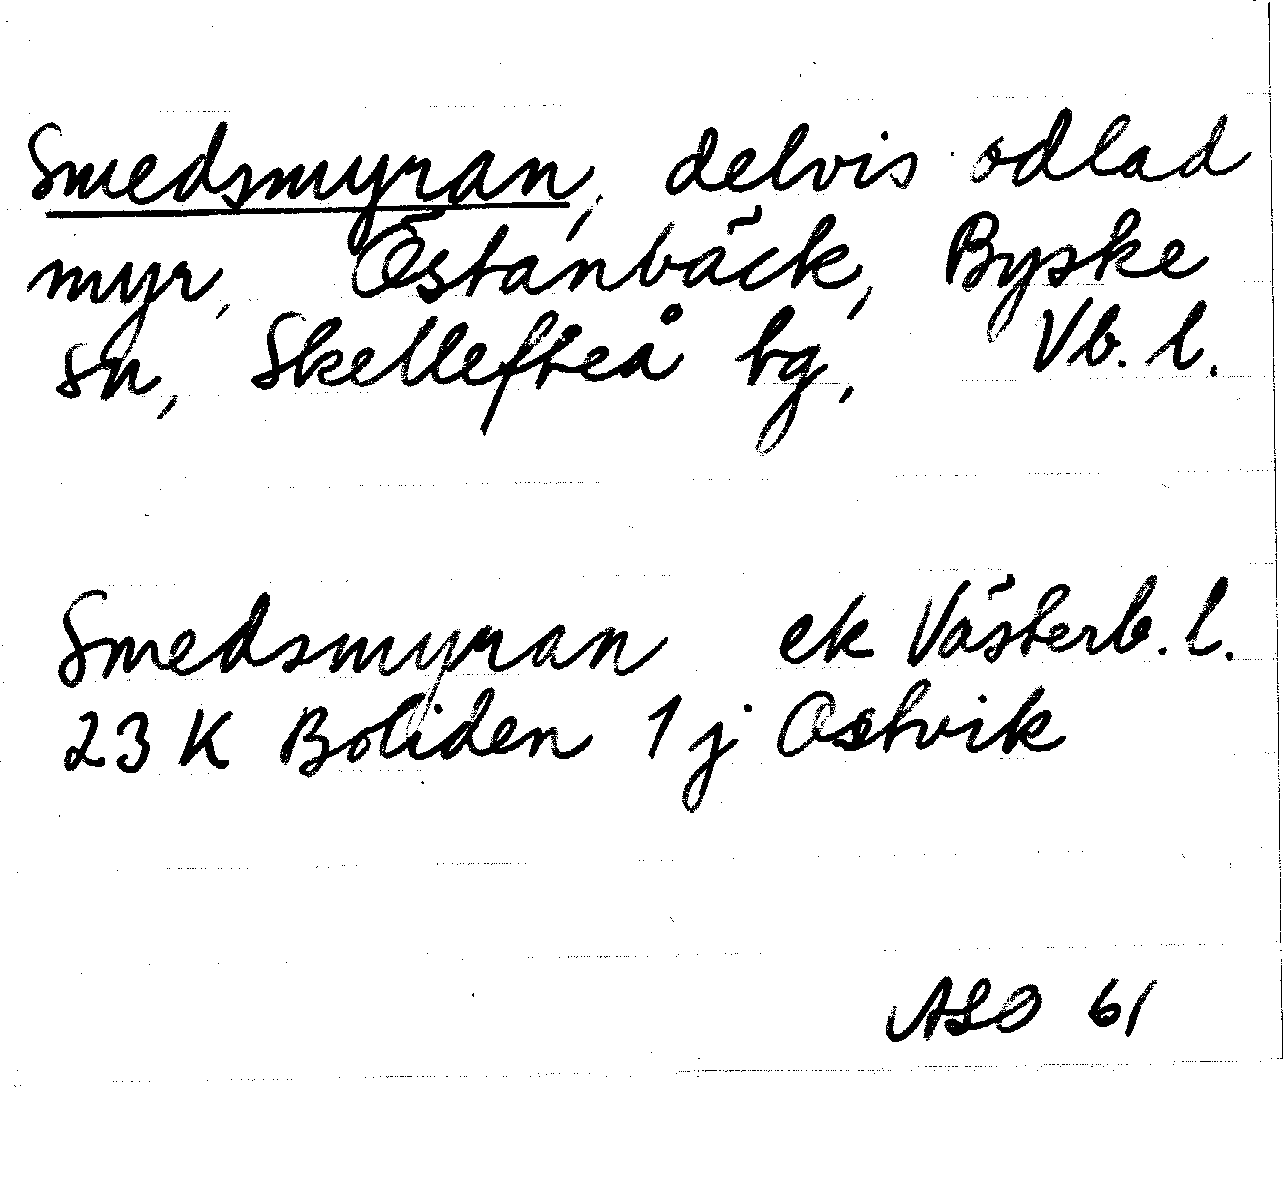 Smedsmyran, delvis odlad
myr, Östanbäck, Byske
sn, Skellefteå tg, Vb. l.
Smedsmyran ek Västerb. l.
23 K Boliden 1 j Ostvik
ASO 61